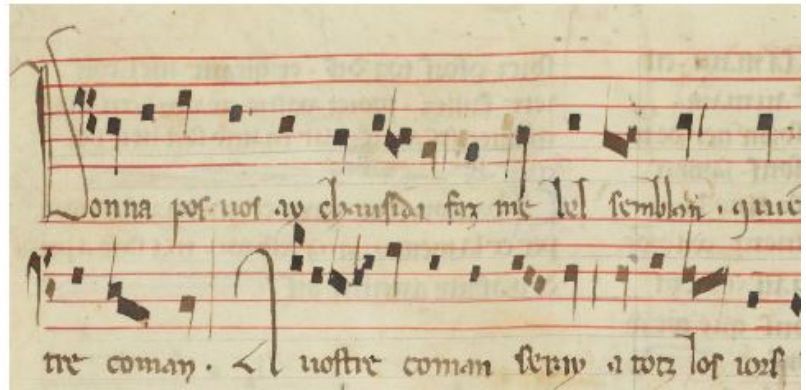 Donna pos uos ay chausida faz me bel semblan . quie
tre coman . A uostre coman seray a totz los iors